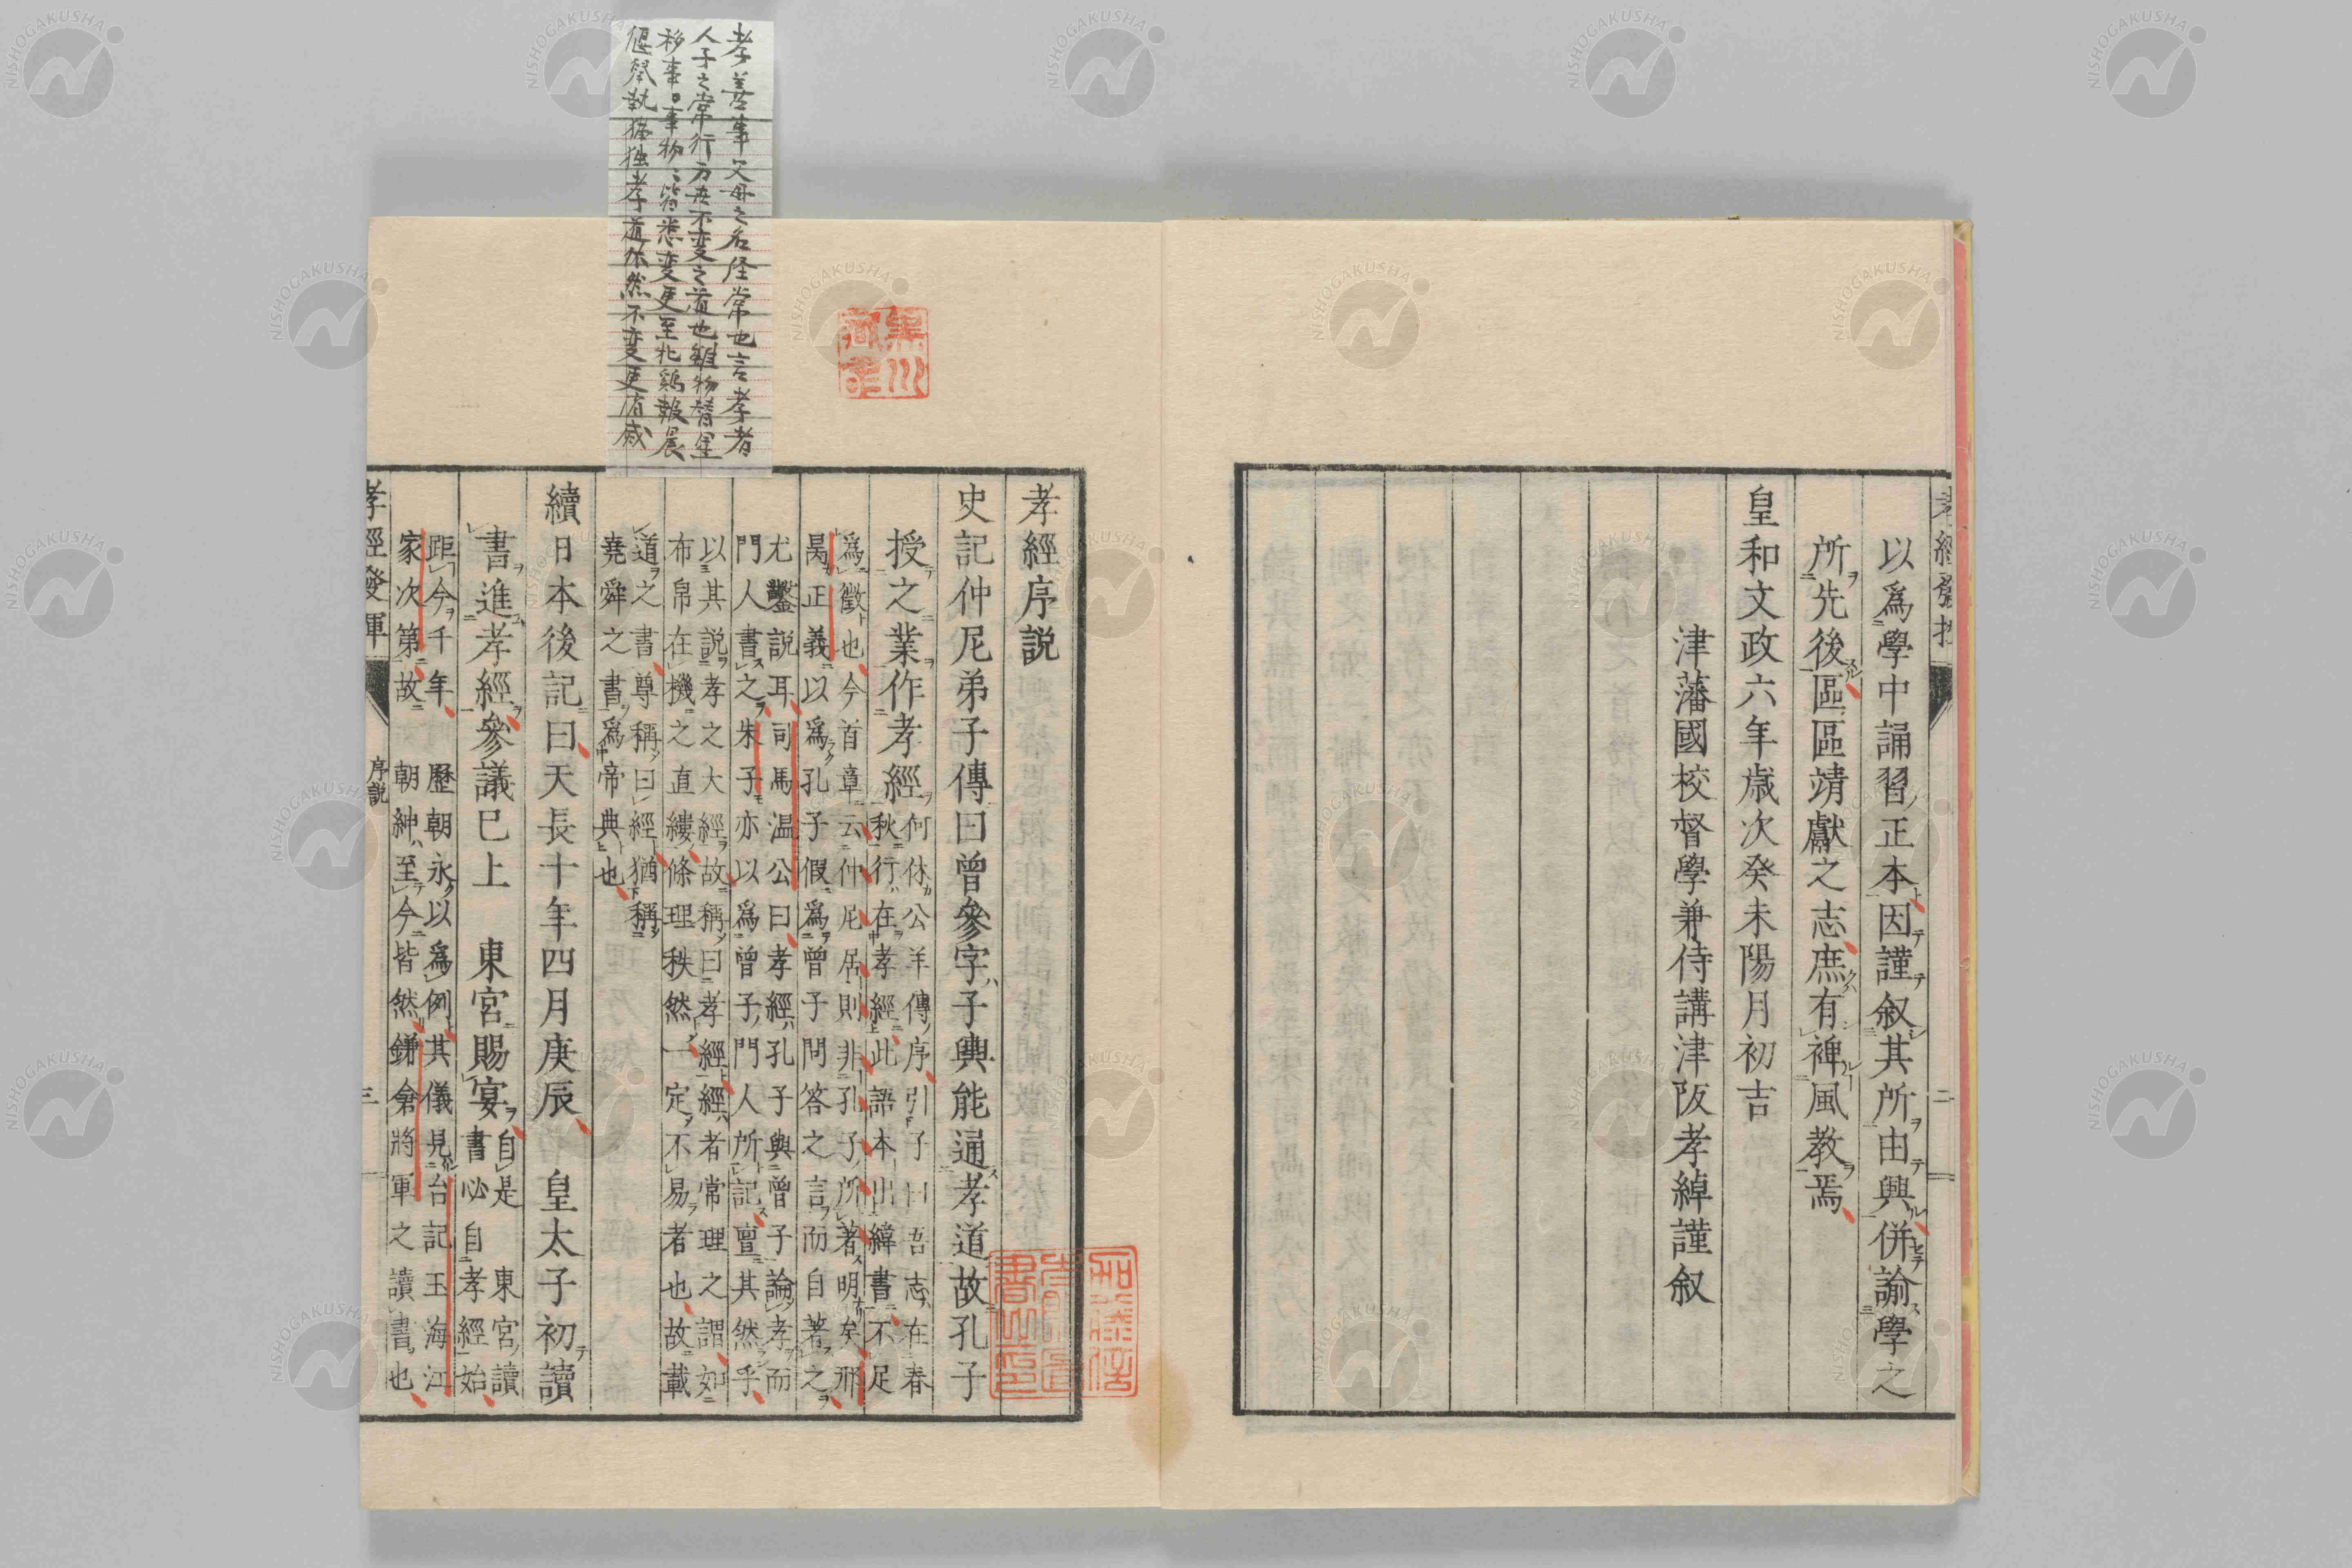 以爲學中誦習正本因謹叙其所由興併諭學之
所先後區區靖獻之志庶有裨風教焉
皇和文政六年歳次癸未陽月初吉
津藩國校督學兼侍講津阪孝綽謹叙
孝經序説
史記仲尼弟子傳曰曾參字子輿能通孝道故孔子
授之業作孝經
何休公羊傳序引子曰吾志在春
秋行在孝經此語本出緯書不足
爲徵也今首章云仲尼居則非孔子所著明矣邢
昺正義以爲孔子假爲曾子問答之言而自著之
尤鑿説耳司馬温公曰孝經孔子與曾子論孝而
門人書之朱子亦以爲曾子門人所記亶其然乎
以其説孝之大經故稱曰孝經經者常理之謂如
布帛在機之直縷條理秩然一定不易者也故載
道之書尊稱曰經猶稱
堯舜之書爲帝典也
續日本後記曰天長十年四月庚辰 皇太子初讀
書進孝經參議已上 東宮賜宴
自是 東宮讀
書必自孝經始
距今千年 歷朝永以爲例其儀見台記玉海江
家次第故 朝紳至今皆然鎌倉將軍之讀書也
孝經發揮
序説
三
孝善事父母之名経常也言孝者
人子之常行万世不変之道也雖物替星
移事〻事物〻皆悉変更至牝鶏報晨
然不変更
NISHOGAKUSHA